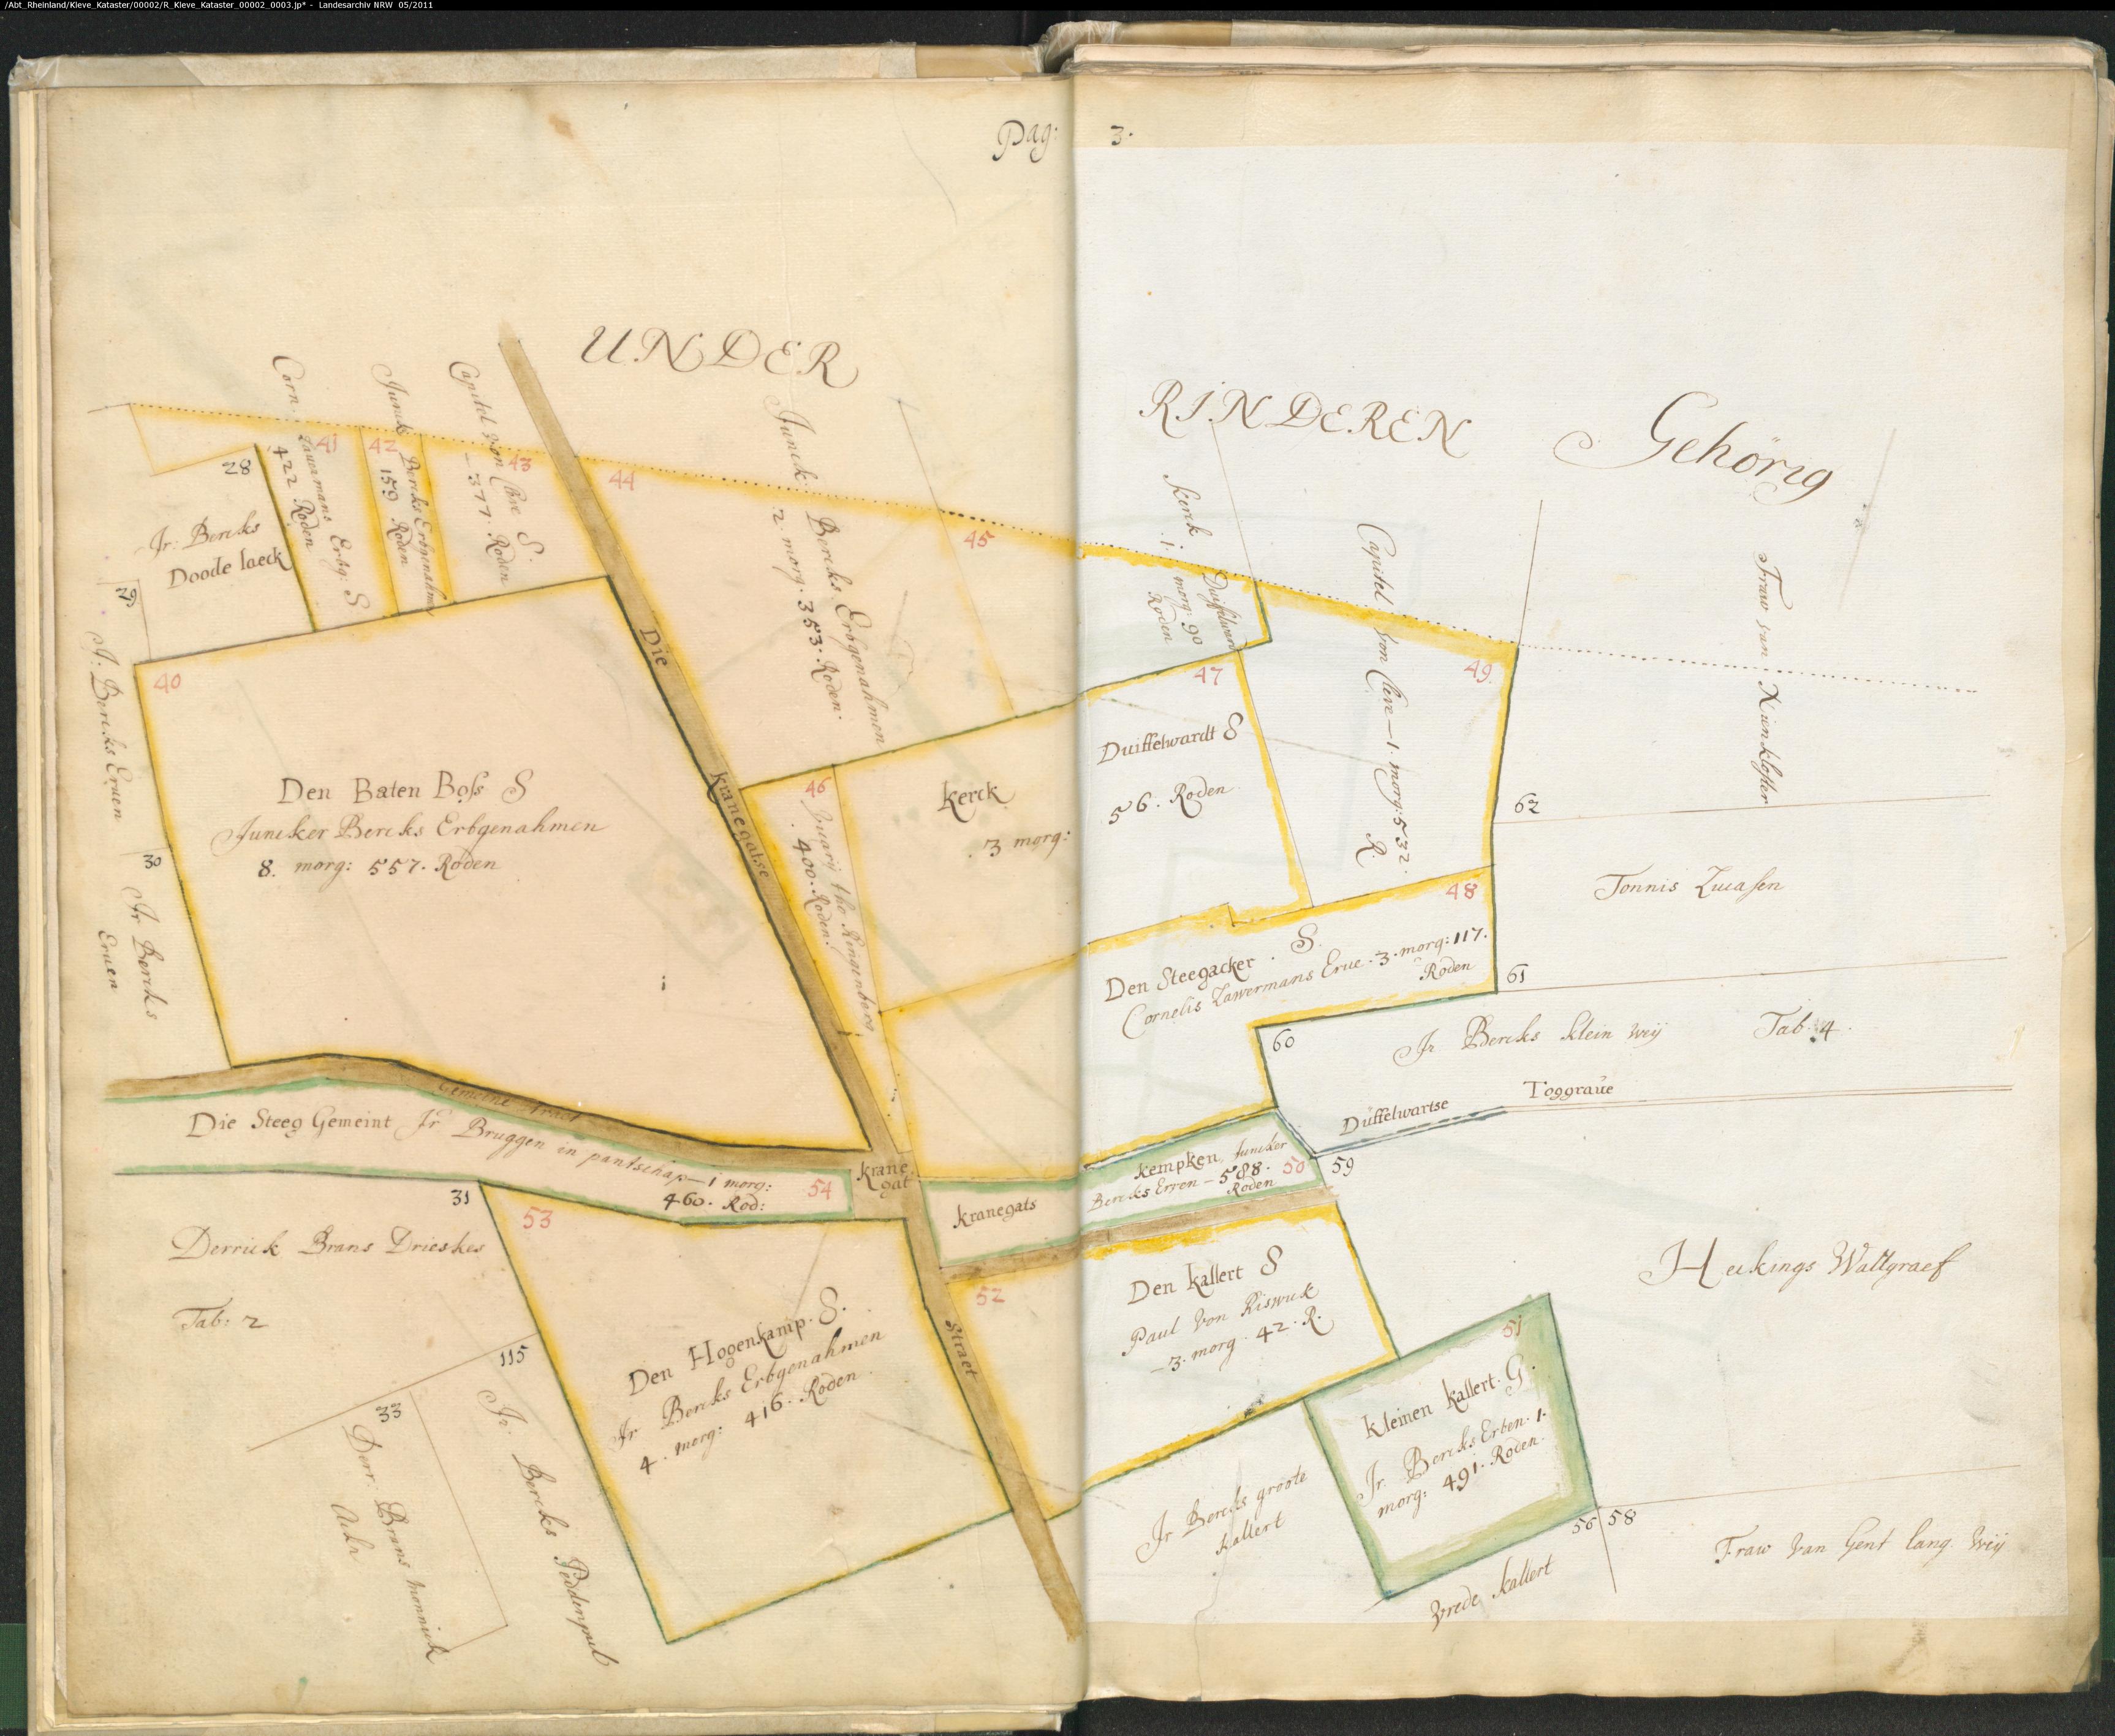 /Abt_Rheinland/Kleve_Kataster/00002/R_Kleve_Kataster_00002_0003.jp* - Landesarchiv NRW 05/2011
Pag: 3.
UNDER RINDEREN Gehörig
28
Jr: Bercks
Doode laeck
29
41
Corn. Zauermans Erbg: S
422 Roden
42
Junck Bercks Erbgenahmen
159 Roden
43
Capitel von Cleve S.
- 377. Roden
44
Junck. Bercks Erbgenahmen
2 morg: 353. Roden.
45
Kerck Duiffelwardt
1. morg: 90
Roden
Capitel von Cleve - 1. morg: 532.
R.
49.
Fraw van
62
40
Den Baten Boss S
Juncker Bercks Erbgenahmen
8. morg: 557. Roden
Bercks Eruen
30
Jr Bercks
Eruen
Die Kranegatse
46
tho Ringenborg
400. Roden.
47
Kerck Duiffelwardt S
3 morg: 56. Roden
48
Den Steegacker. S.
Cornelis Zawermans Erue. 3. morg: 117.
Roden
Tonnis Lucassen
61
60
Jr Bercks Klein weij Tab. 4.
Duffelwartse Toggraue
59
Gemeine Straet
Die Steeg Gemeint Jr Bruggen in pantschap - 1 morg:
460. Rod:
54
Krane
gat
Kranegats Kempken, Juncker
Bercks Erven - 588.
Roden
50
31
Derrick Brans Drieskes
Tab: 2
53
Den Hogenkamp. S.
Jr Bercks Erbgenahmen
4. morg: 416. Roden.
Straet
52
Den Kallert S
Paul von Riswick
- 3. morg. 42. R.
51
Kleinen Kallert. G.
Jr. Bercks Erben. 1.
morg: 491. Roden.
Heckings Waltgraef
115
33
Derr. Brans
Jr. Bercks Peddenpul
Jr Bercks groote
Kallert
56
58
Vrede Kallert
Fraw van Gent lang weij